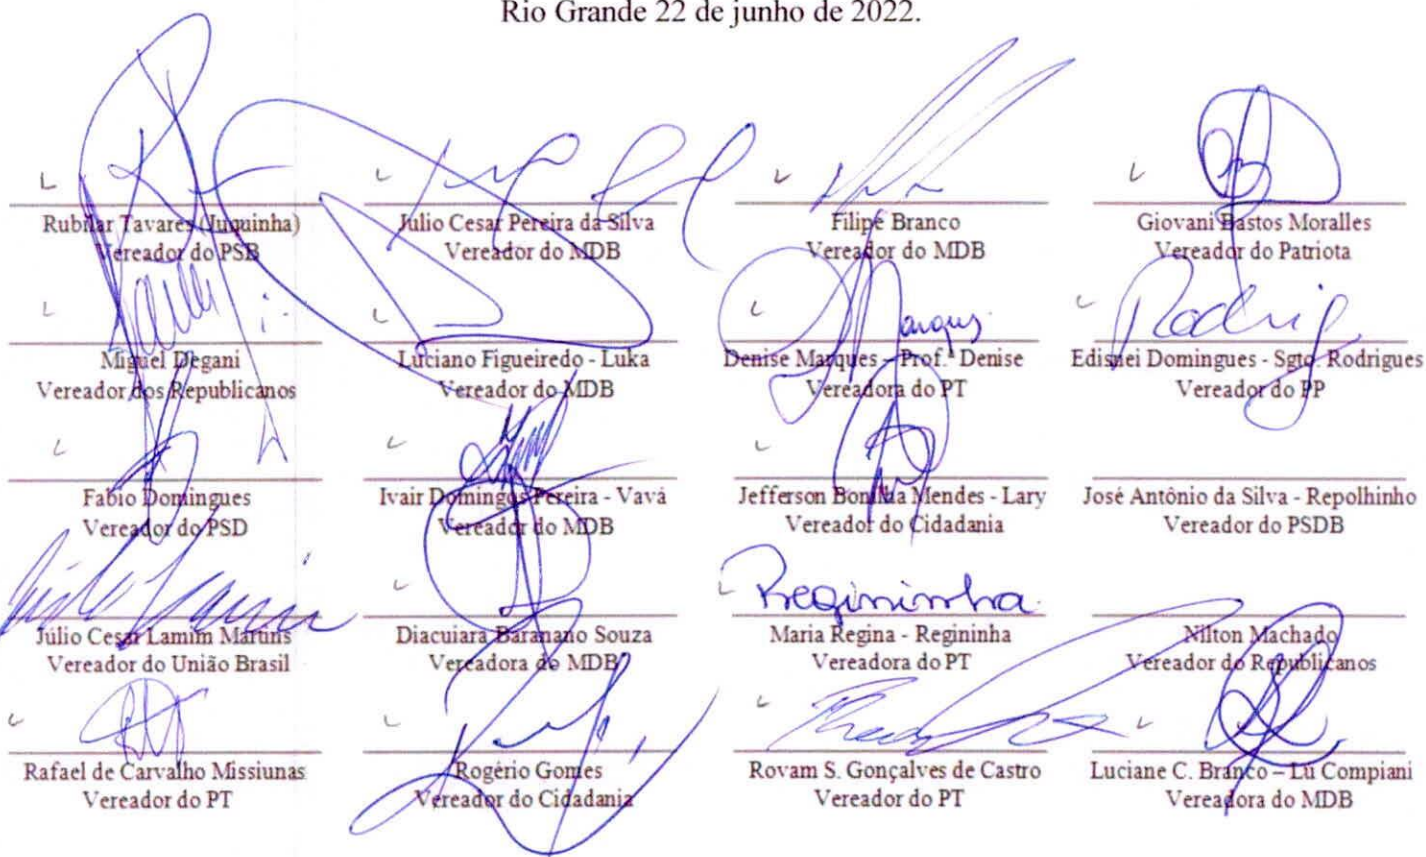 Rio Grande 22 de junho de 2022.
Rubilar Tavares (Juquinha)
Vereador do PSB
Júlio Cesar Pereira da Silva
Vereador do MDB
Filipe Branco
Vereador do MDB
Giovani Bastos Moralles
Vereador do Patriota
Miguel Degani
Vereador dos Republicanos
Luciano Figueiredo - Luka
Vereador do MDB
Marques
Denise Marques - Prof.ª Denise
Vereadora do PT
Rodrig
Edisnei Domingues - Sgto. Rodrigues
Vereador do PP
Fabio Domingues
Vereador do PSD
Ivair Domingos Pereira - Vavá
Vereador do MDB
Jefferson Bonilha Mendes - Lary
Vereador do Cidadania
José Antônio da Silva - Repolhinho
Vereador do PSDB
Júlio Cesar Lamim Martins
Vereador do União Brasil
Diacuiara Baranano Souza
Vereadora do MDB
Regininha
Maria Regina - Regininha
Vereadora do PT
Nilton Machado
Vereador do Republicanos
Rafael de Carvalho Missiunas
Vereador do PT
Rogério Gomes
Vereador do Cidadania
Rovam S. Gonçalves de Castro
Vereador do PT
Luciane C. Branco – Lu Compiani
Vereadora do MDB